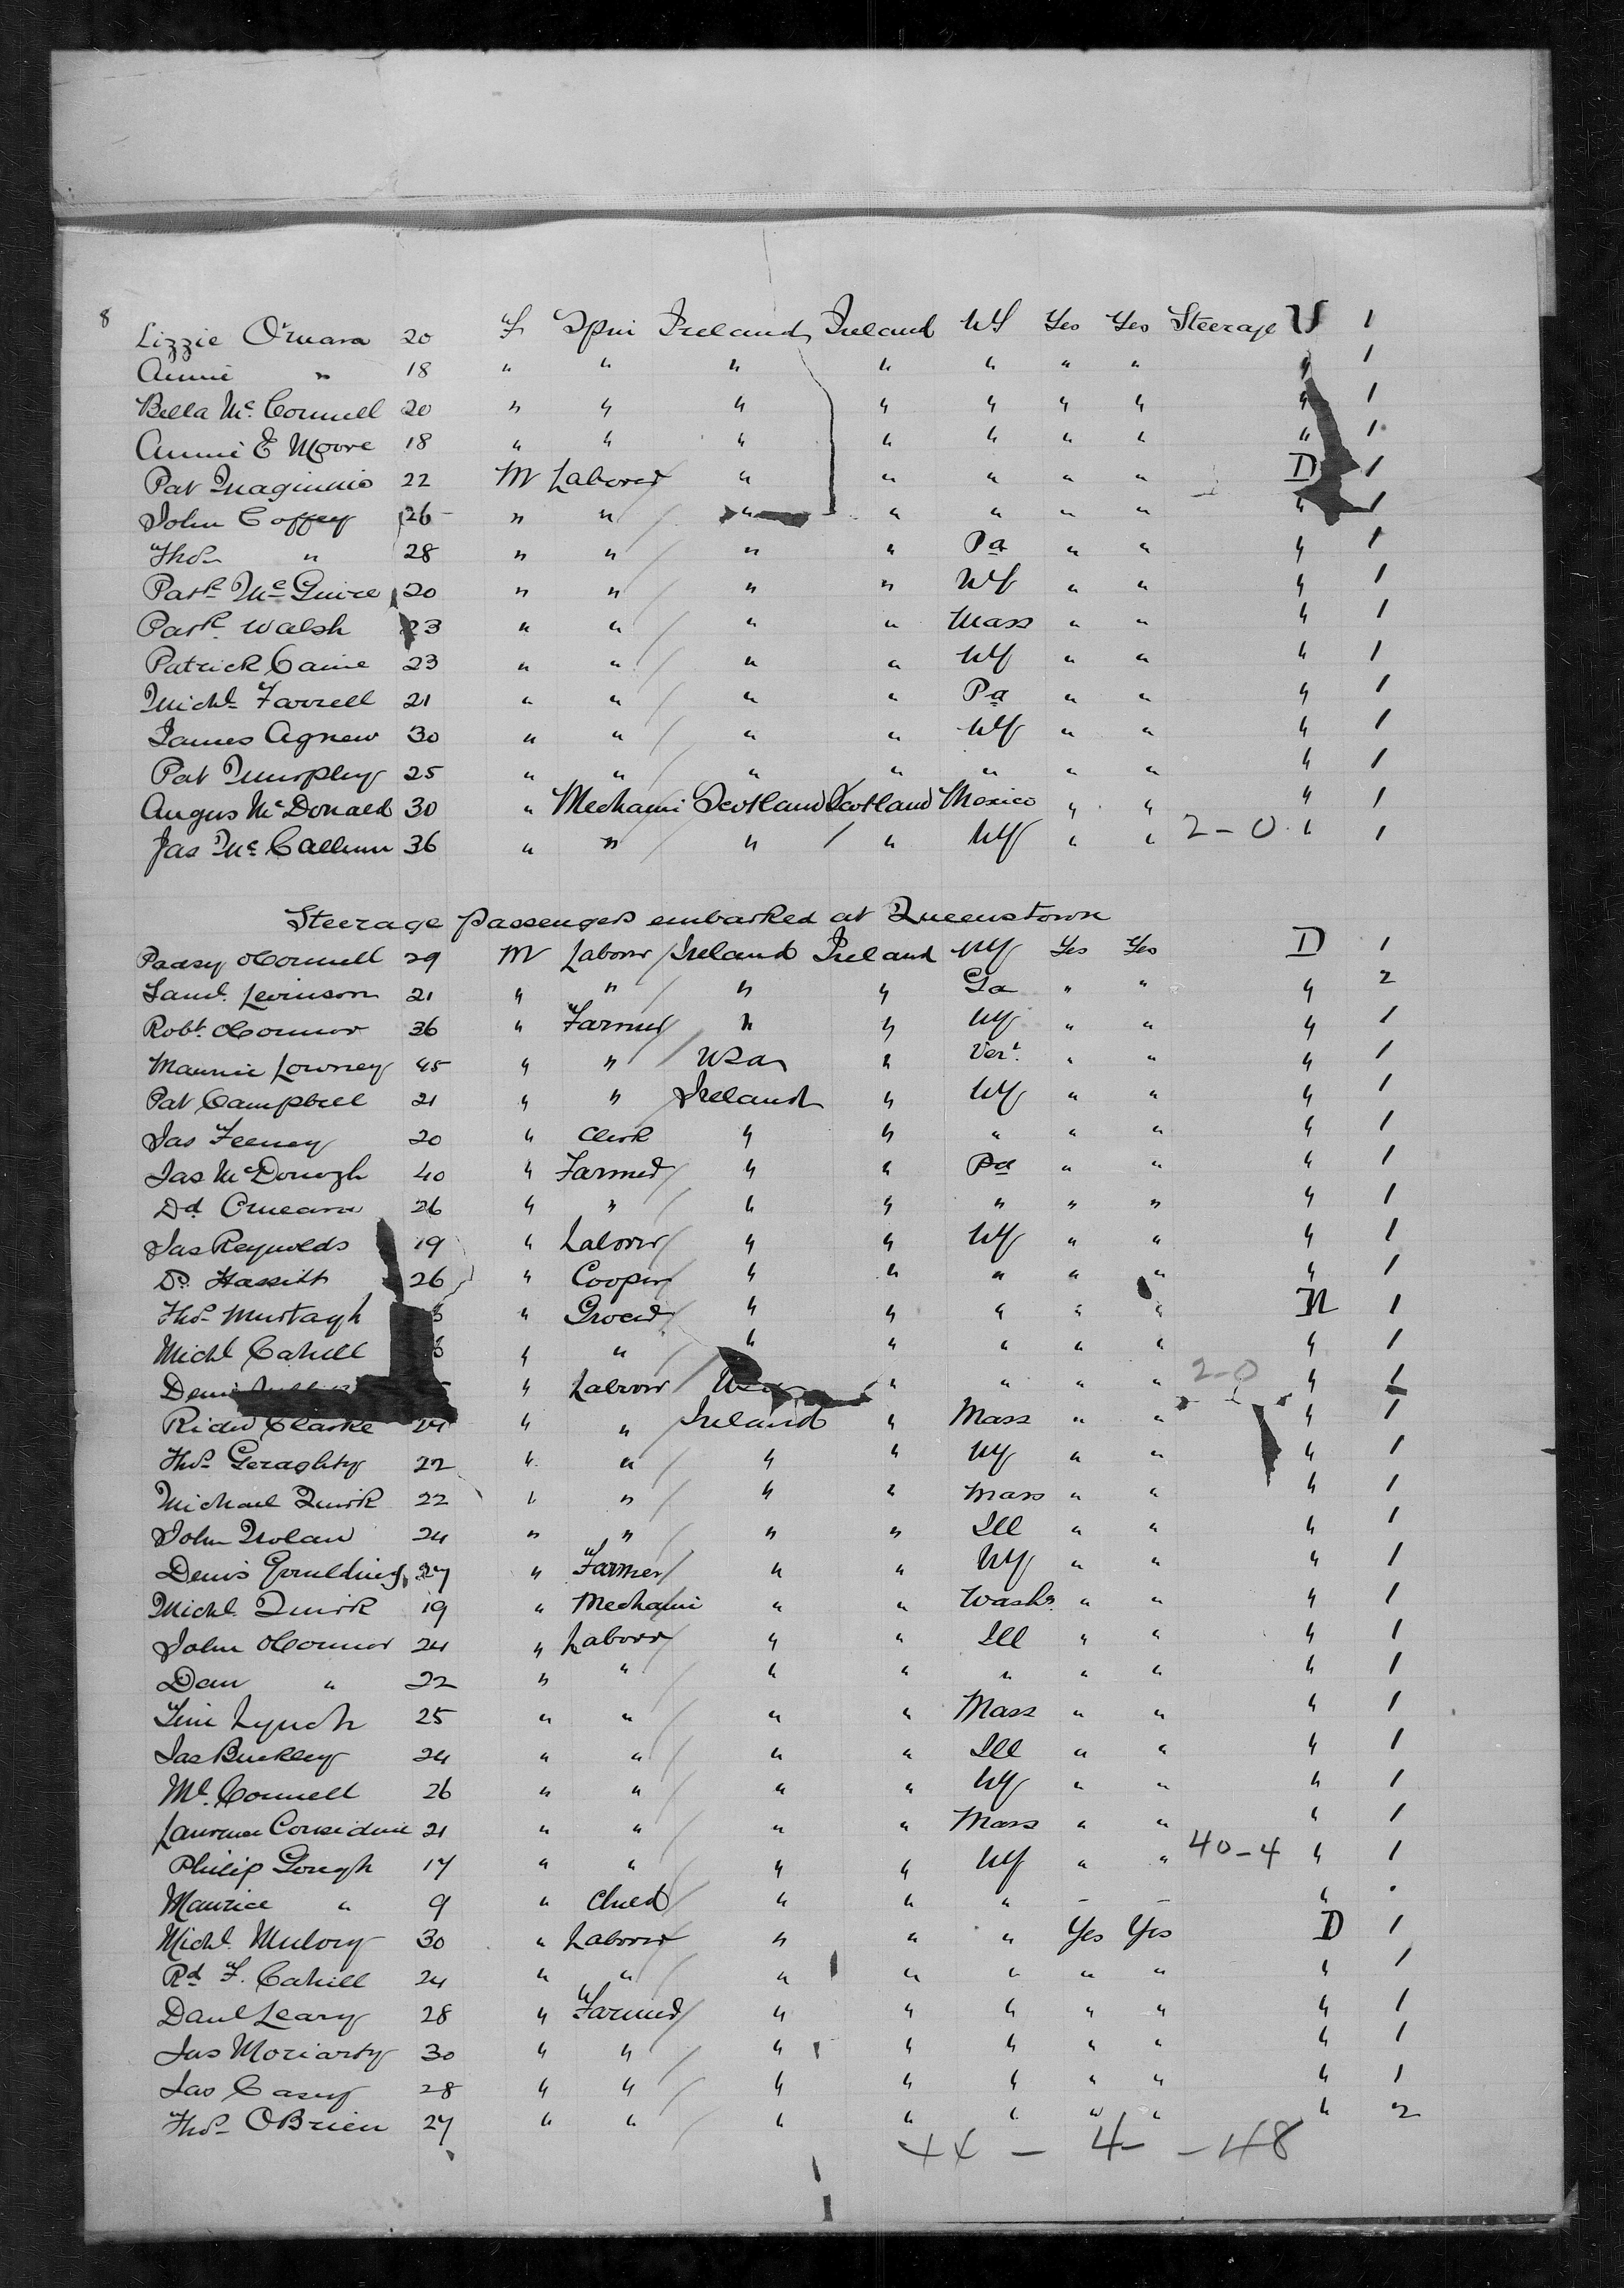 8
Lizzie O'Meara 20 F Spin Ireland Ireland NY Yes Yes Steerage U 1
Annie " 18 " " " " " " " " 1
Bella Mc. Connell 20 " " " " " " " " 1
Annie E Moore 18 " " " " " " " " 1
Pat Maginnis 22 M Laborer " " " " " D 1
John Coffey 26 " " " " " " " " 1
Thos " 28 " " " " Pa " " " 1
Patk Mc Guire 20 " " " " NY " " " 1
Patk Walsh 23 " " " " Mass " " " 1
Patrick Caine 23 " " " " NY " " " 1
Michl Farrell 21 " " " " Pa " " " 1
James Agnew 30 " " " " NY " " " 1
Pat Murphy 25 " " " " " " " " 1
Angus McDonald 30 " Mechani Scotland Scotland Mexico " " " 1
Jas Mc Callum 36 " " " " NY " " 2-0 " 1
Steerage passengers embarked at Queenstown
Paddy OConnell 29 M Labour Ireland Ireland NY Yes Yes D 1
Saml. Levinson 21 " " " " Ga " " " 2
Robt. OConnor 36 " Farmer " " NY " " " 1
Maurice Lowney 45 " " USa " Vert. " " " 1
Pat Campbell 21 " " Ireland " NY " " " 1
Jas Feeney 20 " Clerk " " " " " " 1
Jas McDonogh 40 " Farmer " " Pa " " " 1
Dd Omeara 26 " " " " " " " " 1
Jas Reynolds 19 " Laborer " " NY " " " 1
Hassitt 26 " Cooper " " " " " " 1
Thos Murtagh " Grocer " " " " " N 1
Michl Cahill " " " " " " " " 1
Denis " Labour USa " " " " 2-0 " 1
Richd Clarke 24 " " Ireland " Mass " " " 1
Thos Geraghty 22 " " " " NY " " " 1
Michael Quirk 22 " " " " Mass " " " 1
John Nolan 24 " " " " Ill " " " 1
Denis Goulding 27 " Farmer " " NY " " " 1
Michl Quirk 19 " Mechani " " Washn " " " 1
John OConnor 24 " Labour " " Ill " " " 1
Dan " 22 " " " " " " " " 1
Tim Lynch 25 " " " " Mass " " " 1
Jas Buckley 24 " " " " Ill " " " 1
Ml. Connell 26 " " " " NY " " " 1
Laurence Considine 21 " " " " Mass " " " 1
Philip Gough 17 " " " " NY " " 40-4 " 1
Maurice " 9 " Child " " " - - "
Michl. Mulory 30 " Laborer " " " Yes Yes D 1
Rd F. Cahill 24 " " " " " " " " 1
Danl Leary 28 " Farmer " " " " " " 1
Jas Moriarty 30 " " " " " " " " 1
Jas Casey 28 " " " " " " " " 1
Thos OBrien 27 " " " " " " " " 2
44 - 4 - 48